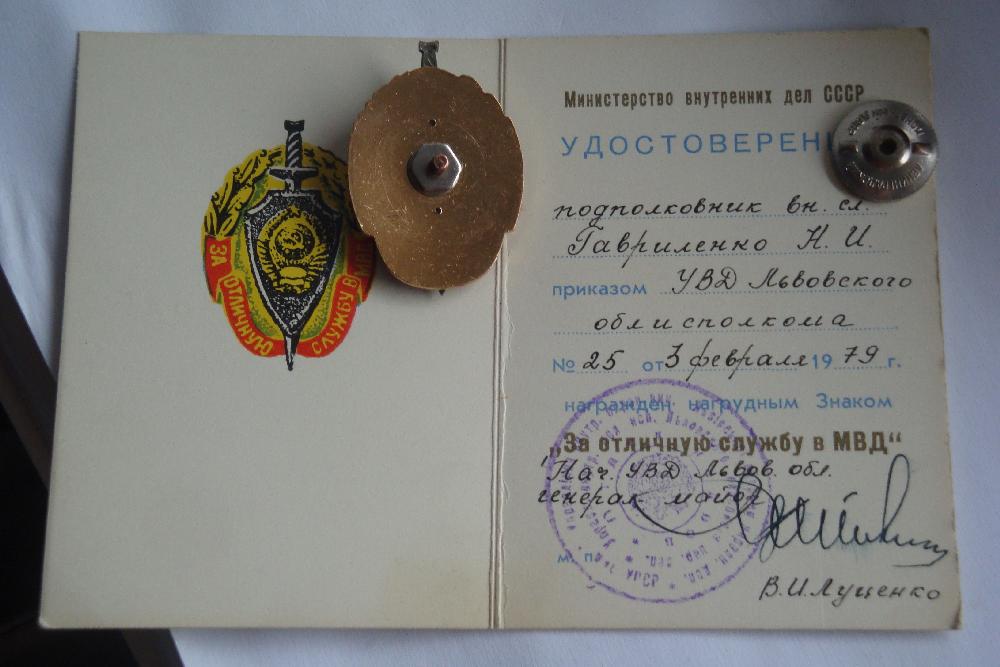 ЗА ОТЛИЧНУЮ СЛУЖБУ В МВД
Министерство внутренних дел СССР
УДОСТОВЕРЕН
подполковник вн. сл.
Гавриленко Н. И.
приказом УВД Львовского
облисполкома
№ 25 от 3 февраля 1979 г.
награжден нагрудным Знаком
„За отличную службу в МВД“
Нач. УВД Львов. обл.
генерал майор
м. п.
В. И. Луценко